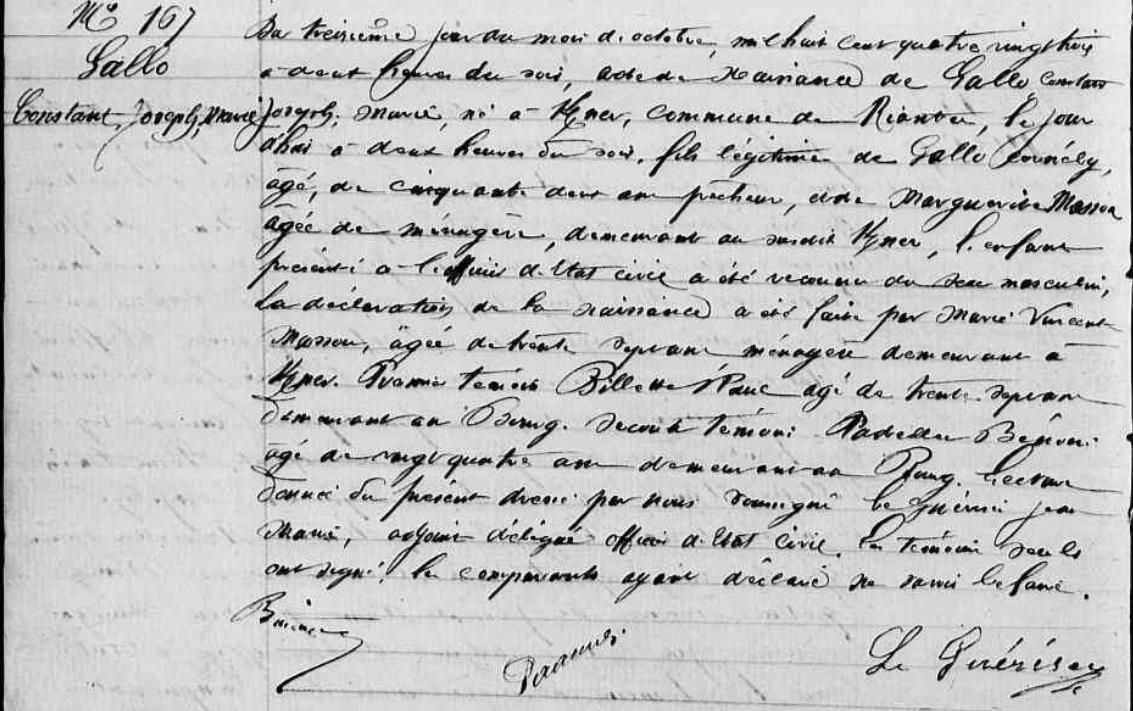 No 167
Gallo
Constant, Joseph, Marie
Du treizième jour du mois d'octobre, mil huit cent quatre vingt trois
à deux heures du soir, acte de naissance de Gallo, Constant
Joseph, Marie, né à Kner, commune de Riantec, le jour
d'hui à deux heures du soir, fils légitime de Gallo
âgé, de cinquante deux ans pêcheur, et de Marguerite Masson
âgée de ménagère, demeurant au susdit Kner, l'enfant
présenté à l'officier d'Etat civil a été reconnu du sexe masculin,
La déclaration de la naissance a été faite par Marie Vincente
Masson, âgée de trente sept ans ménagère demeurant à
Kner. Premier témoin âgé de trente sept ans
demeurant au Bourg. Second témoin
âgé de vingt quatre ans demeurant au Bourg. Lecture
donnée du présent dressé par nous soussigné Le Guérisec jean
Marie, adjoint délégué officier d'Etat civil. les témoins seuls
ont signé, les comparants ayant déclaré ne savoir le faire.
Le Guérisec